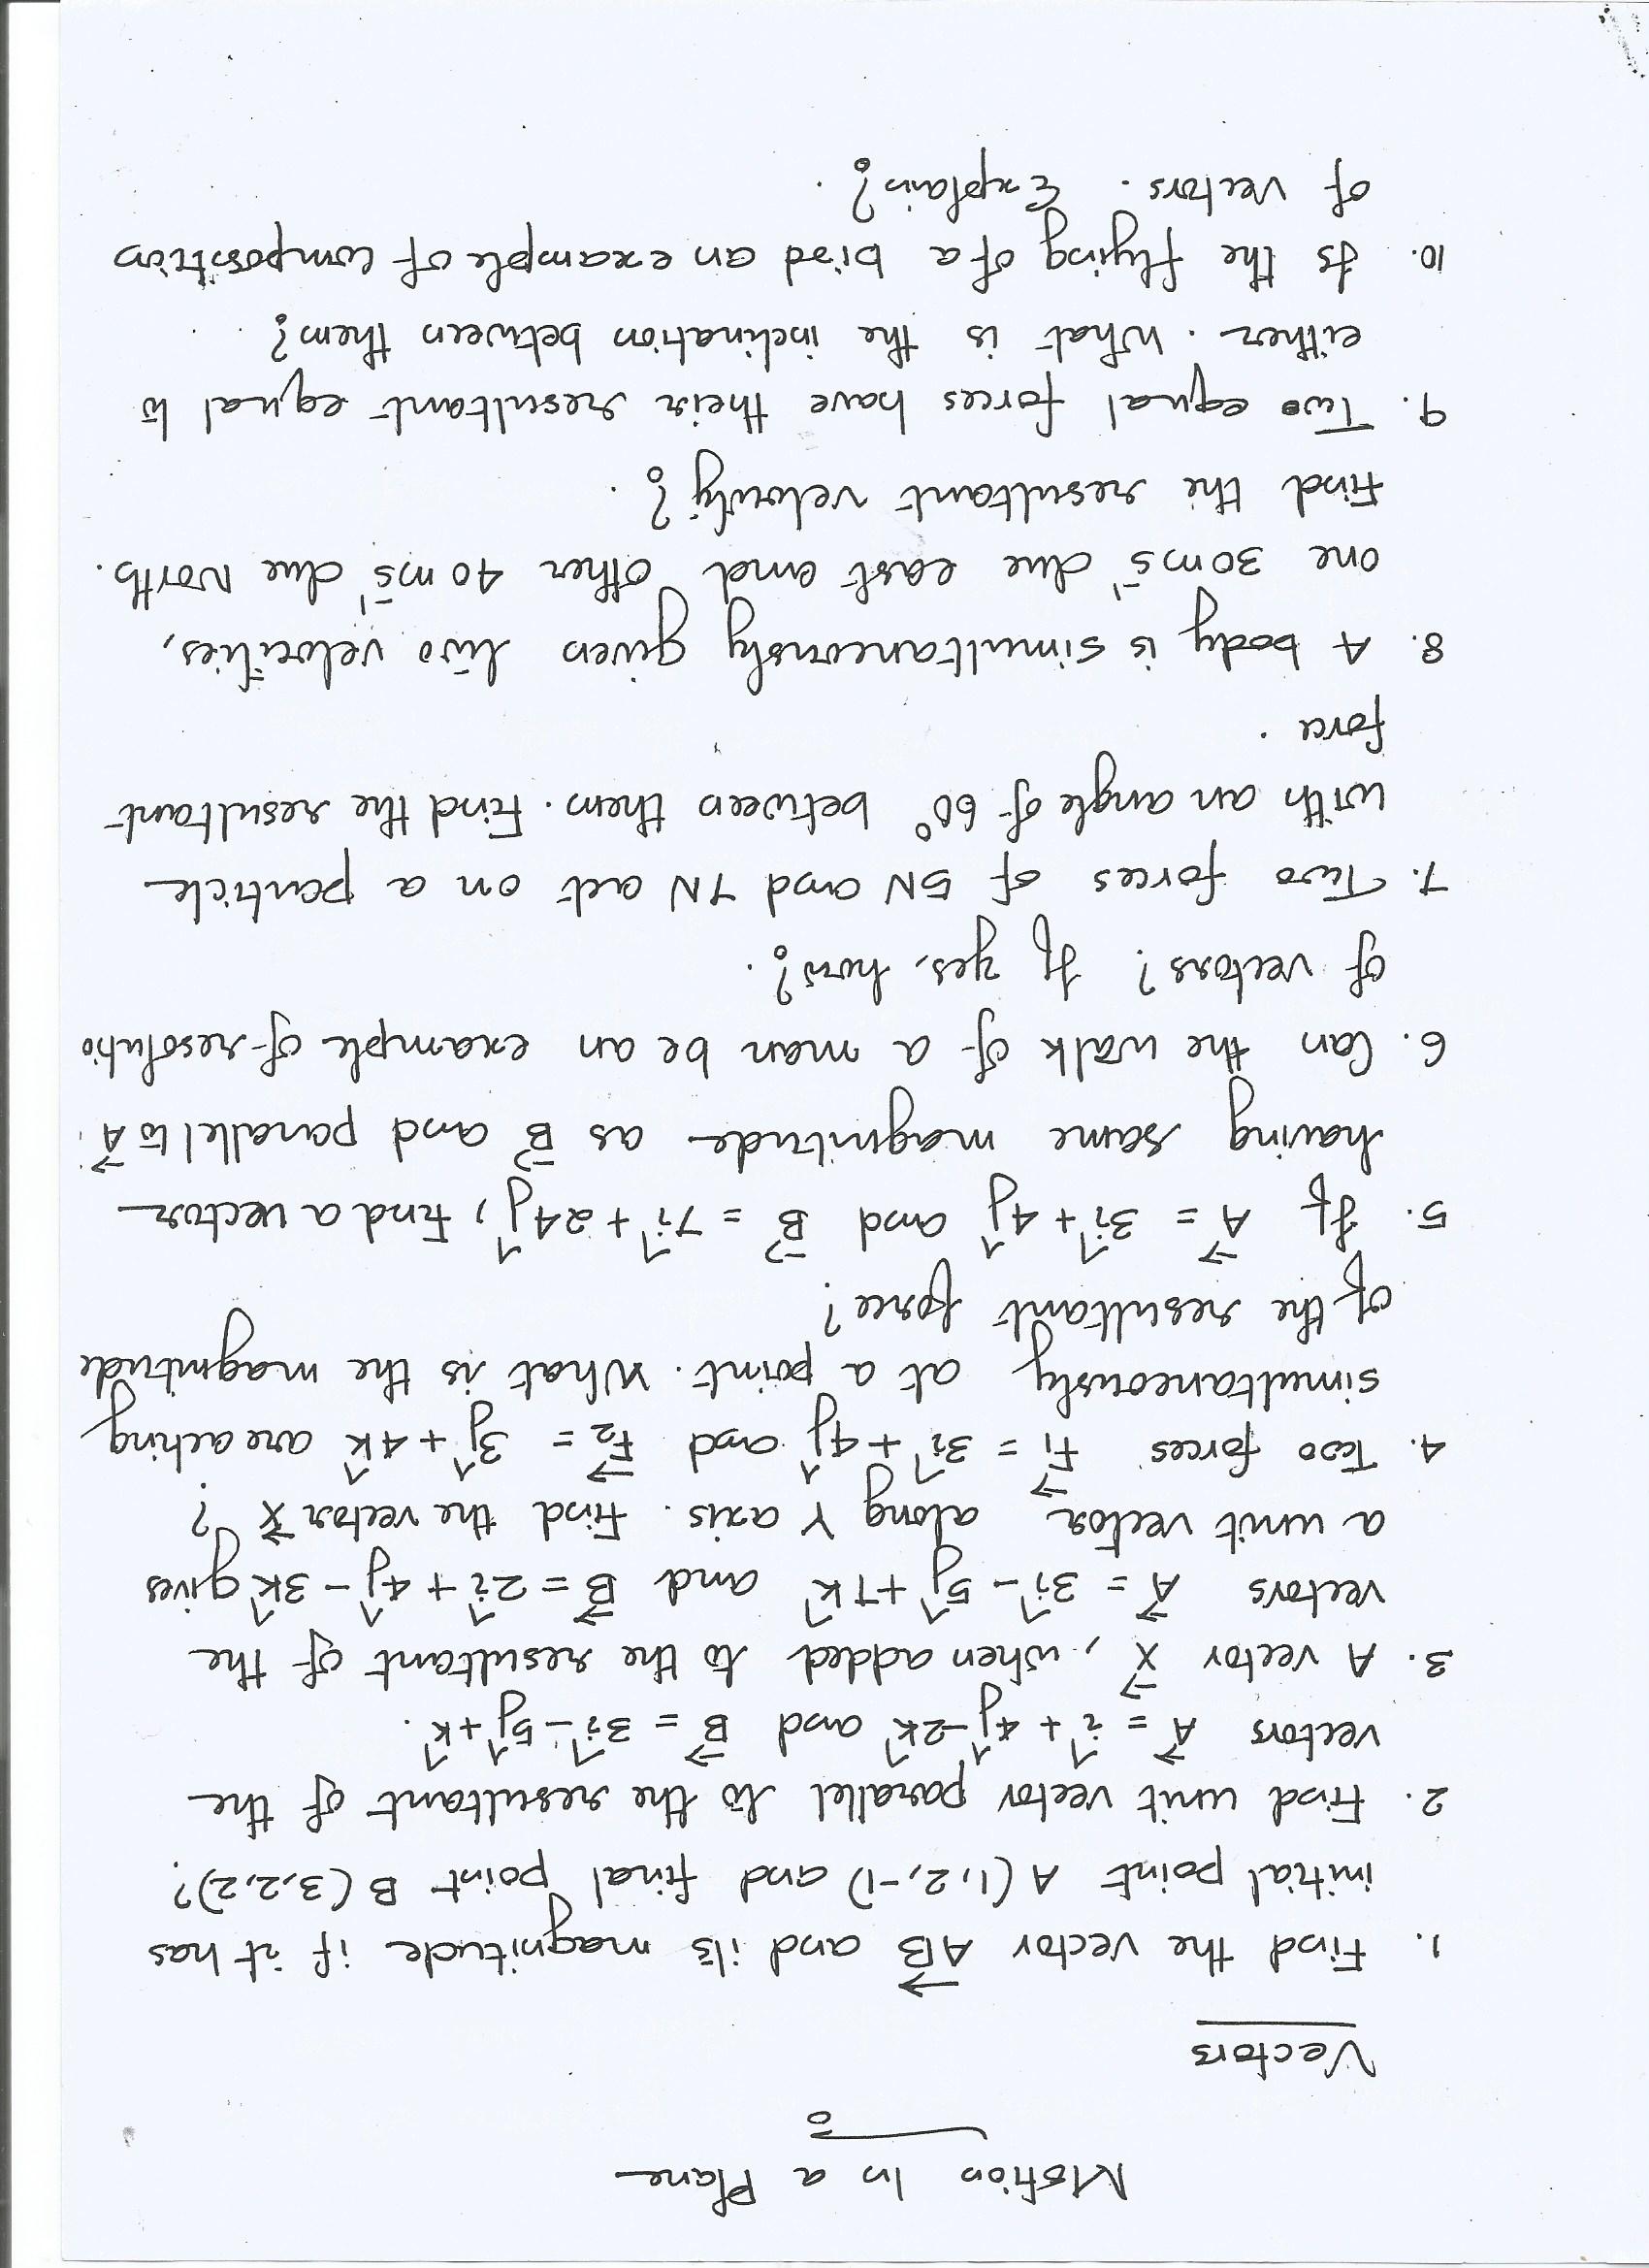 Motion In a Plane
Vectors
1. Find the vector $\overrightarrow{AB}$ and its magnitude if it has
initial point A (1, 2, -1) and final point B (3,2,2)?
2. Find unit vector parallel to the resultant of the
vectors $\vec{A} = \hat{i} + 4\hat{j} - 2\hat{k}$ and $\vec{B} = 3\hat{i} - 5\hat{j} + \hat{k}$.
3. A vector $\vec{X}$, when added to the resultant of the
vectors $\vec{A} = 3\hat{i} - 5\hat{j} + 7\hat{k}$ and $\vec{B} = 2\hat{i} + 4\hat{j} - 3\hat{k}$ gives
a unit vector along Y axis. Find the vector $\vec{X}$ ?
4. Two forces $\vec{F_1} = 3\hat{i} + 4\hat{j}$ and $\vec{F_2} = 3\hat{j} + 4\hat{k}$ are acting
simultaneously at a point. What is the magnitude
of the resultant force?
5. If $\vec{A} = 3\hat{i} + 4\hat{j}$ and $\vec{B} = 7\hat{i} + 24\hat{j}$, Find a vector
having same magnitude as $\vec{B}$ and parallel to $\vec{A}$.
6. Can the walk of a man be an example of resolutio
of vectors? If yes, how?.
7. Two forces of 5N and 7N act on a particle
with an angle of 60° between them. Find the resultant
force.
8. A body is simultaneously given two velocities,
one 30 ms⁻¹ due east and other 40 ms⁻¹ due North.
Find the resultant velocity?.
9. Two equal forces have their resultant equal to
either. What is the inclination between them?
10. Is the flying of a bird an example of composition
of vectors. Explain?.